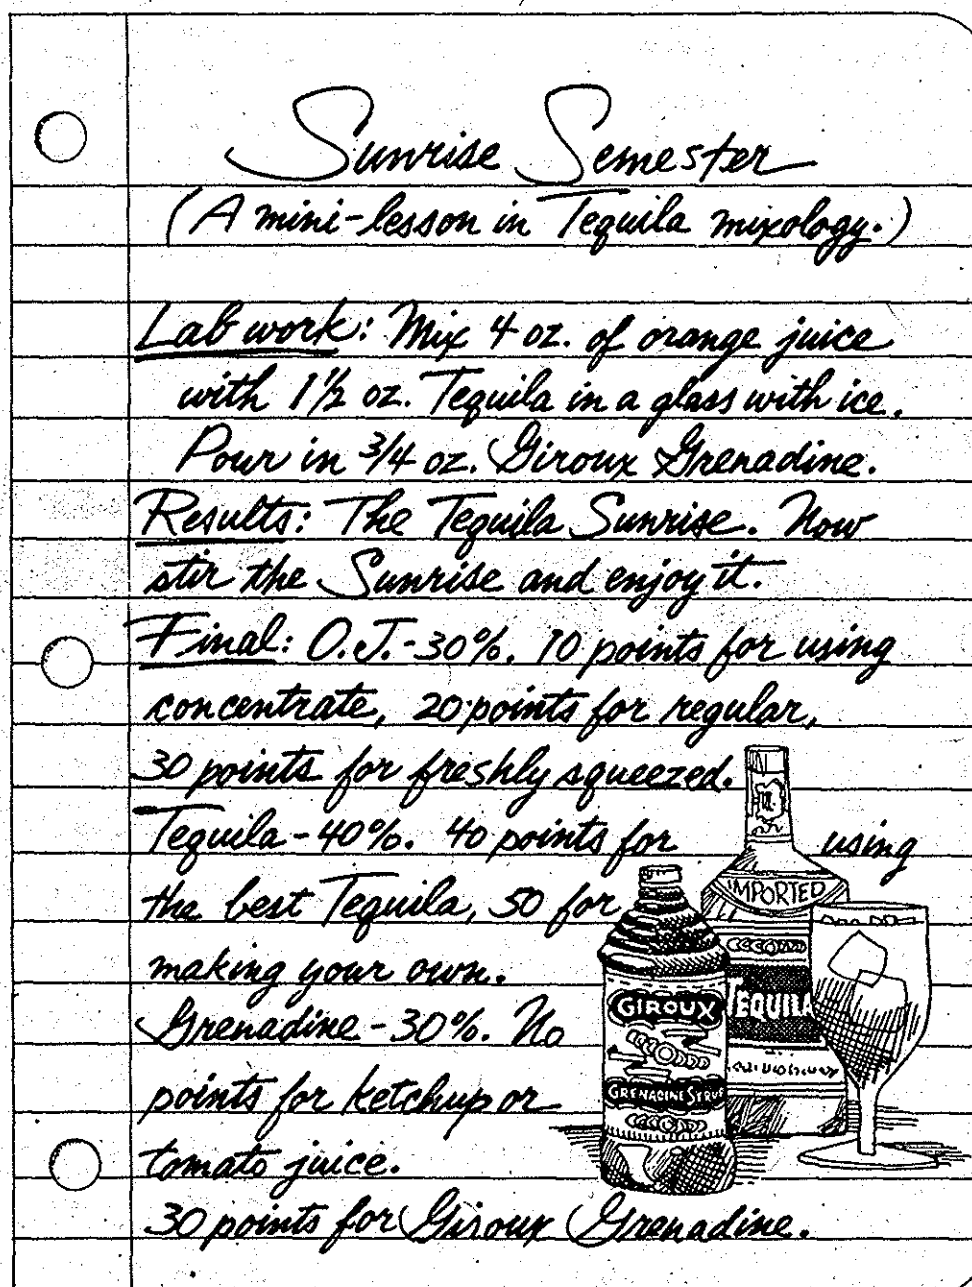 Sunrise Semester
(A mini-lesson in Tequila mixology.)
Lab work: Mix 4 oz. of orange juice
with 1½ oz. Tequila in a glass with ice.
Pour in 3/4 oz. Giroux Grenadine.
Results: The Tequila Sunrise. Now
stir the Sunrise and enjoy it.
Final: O.J.-30%. 10 points for using
concentrate, 20 points for regular,
30 points for freshly squeezed.
Tequila-40%. 40 points for using
the best Tequila, 50 for
making your own.
Grenadine-30%. No
points for ketchup or
tomato juice.
30 points for Giroux Grenadine.
IMPORTED
TEQUILA
GIROUX
GRENADINE SYRUP